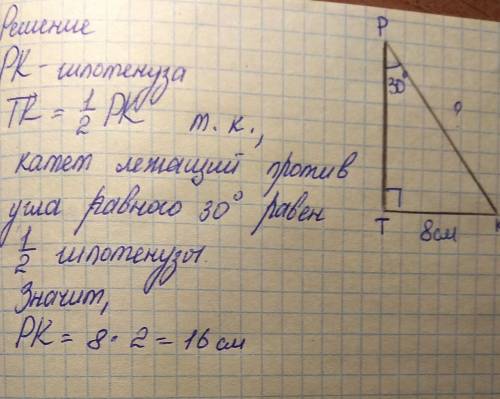 Решение
РК - гипотенуза
ТК = 1/2 РК т. к.,
катет лежащий против
угла равного 30° равен
1/2 гипотенузы
Значит,
РК = 8 · 2 = 16 см
Р
30°
Т
8 см
К